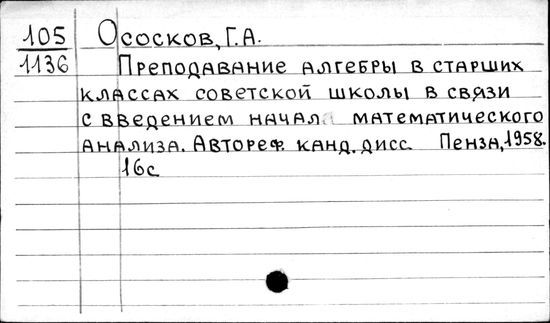 105 Ососков, Г.А.
1136 Преподавание алгебры в старших
классах советской школы в связи
с введением начала математического
анализа. Автореф. канд. дисс. Пенза, 1958.
16с